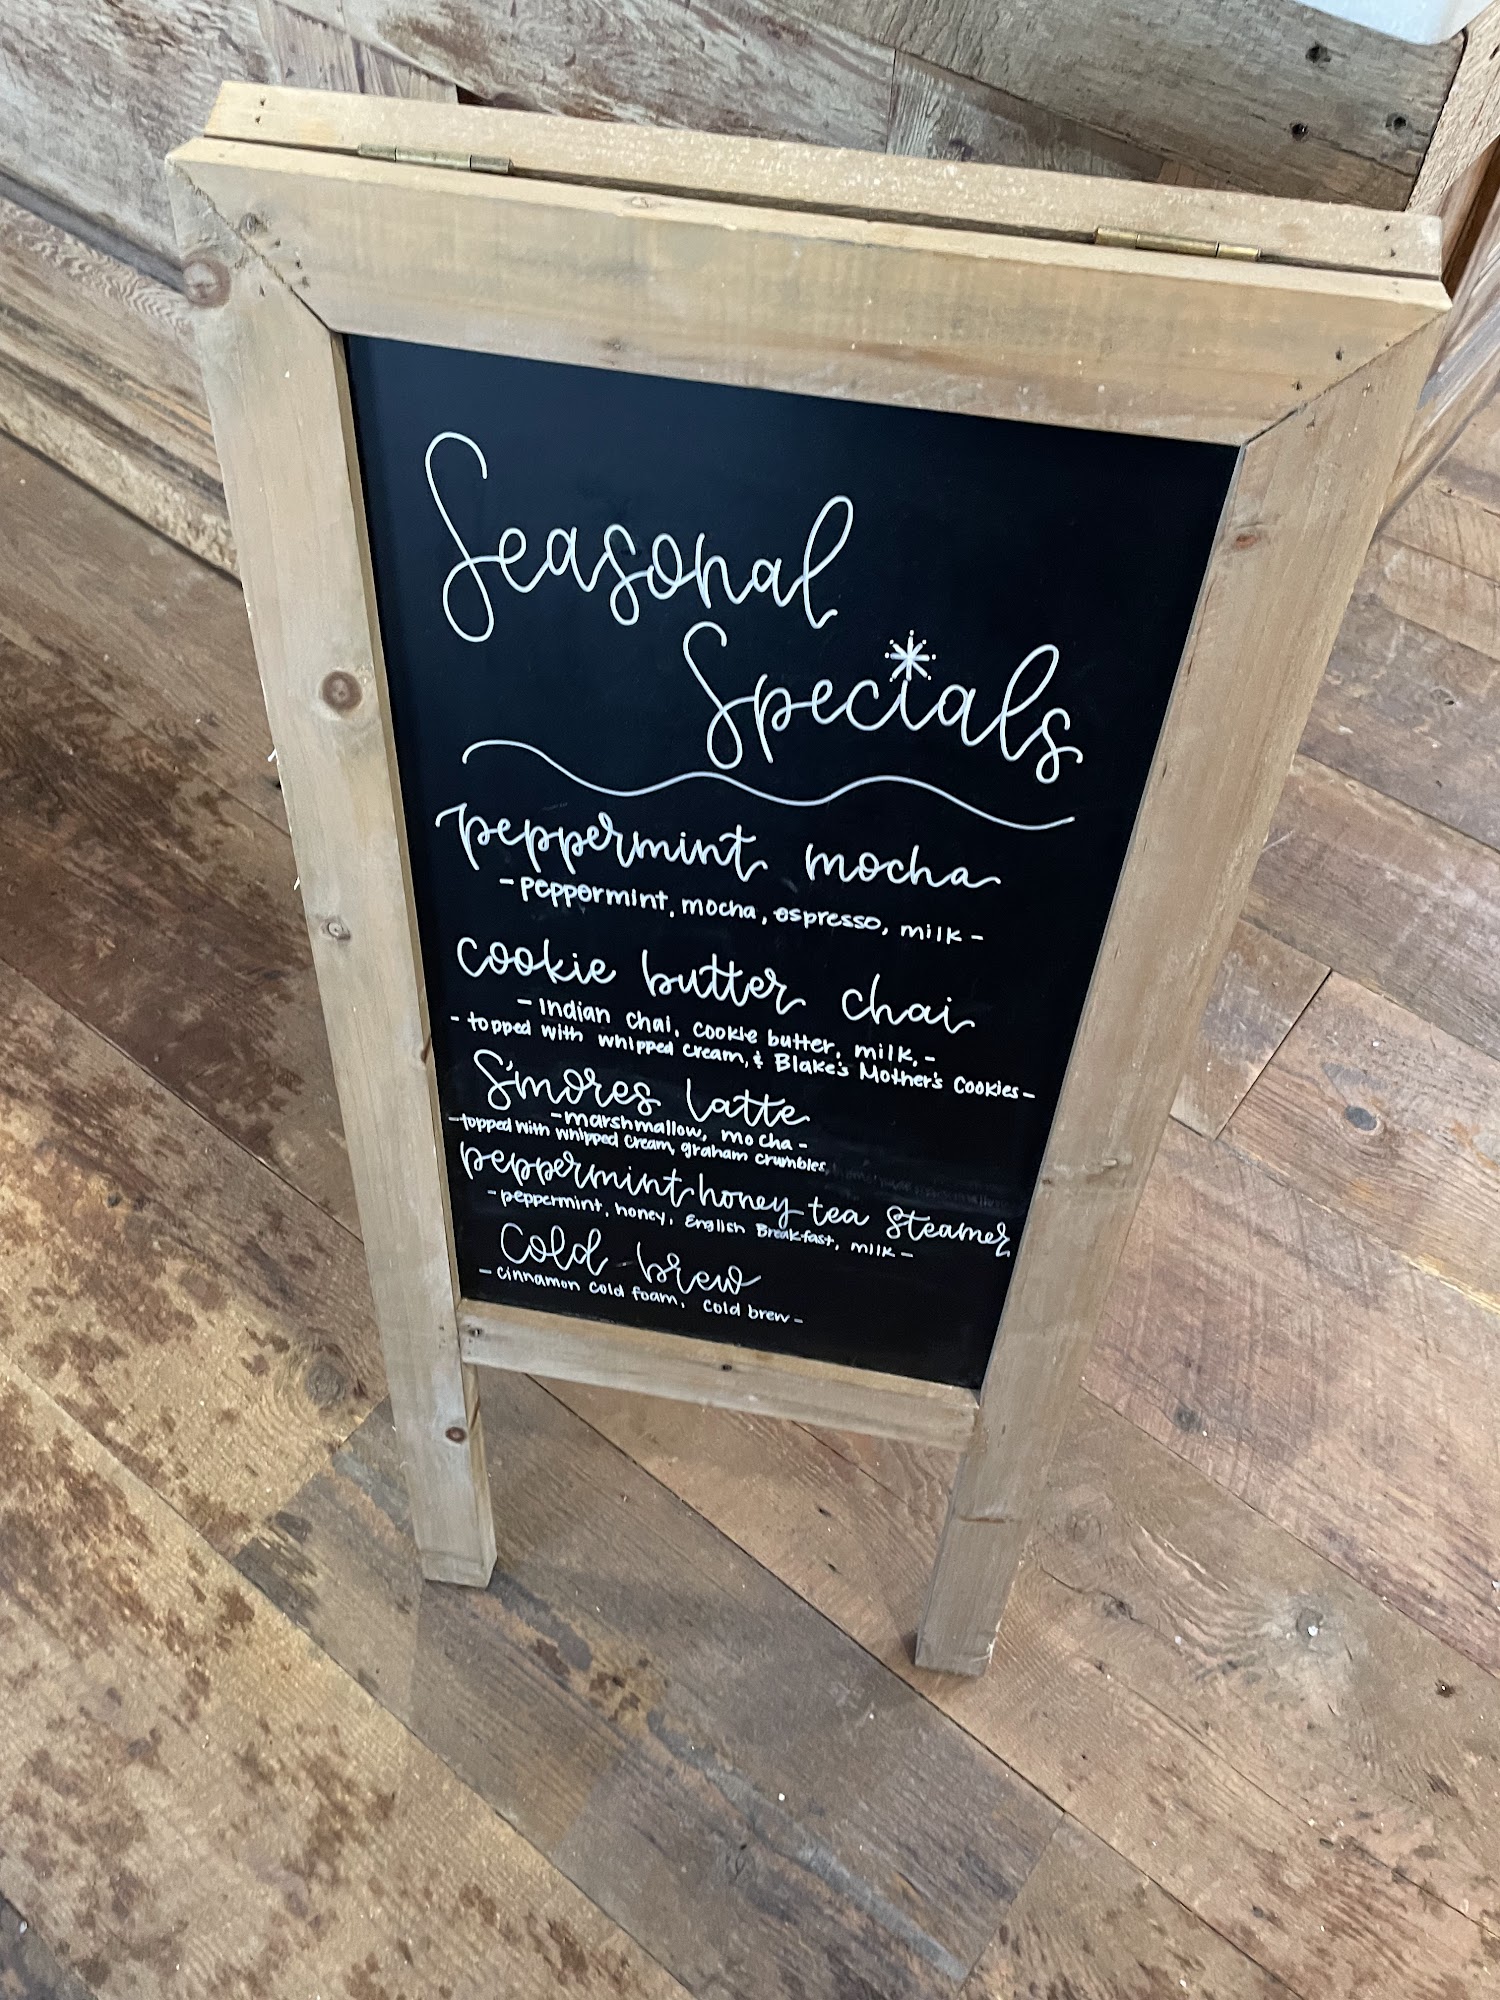 Seasonal
Specials
peppermint mocha
- peppermint, mocha, espresso, milk -
cookie butter chai
- Indian chai, cookie butter, milk, -
- topped with whipped cream, & Blake's Mother's Cookies -
S'mores latte
- marshmallow, mocha -
- topped with whipped cream, graham crumbles,
peppermint honey tea steamer
- peppermint, honey, English Breakfast, milk -
Cold brew
- cinnamon cold foam, cold brew -